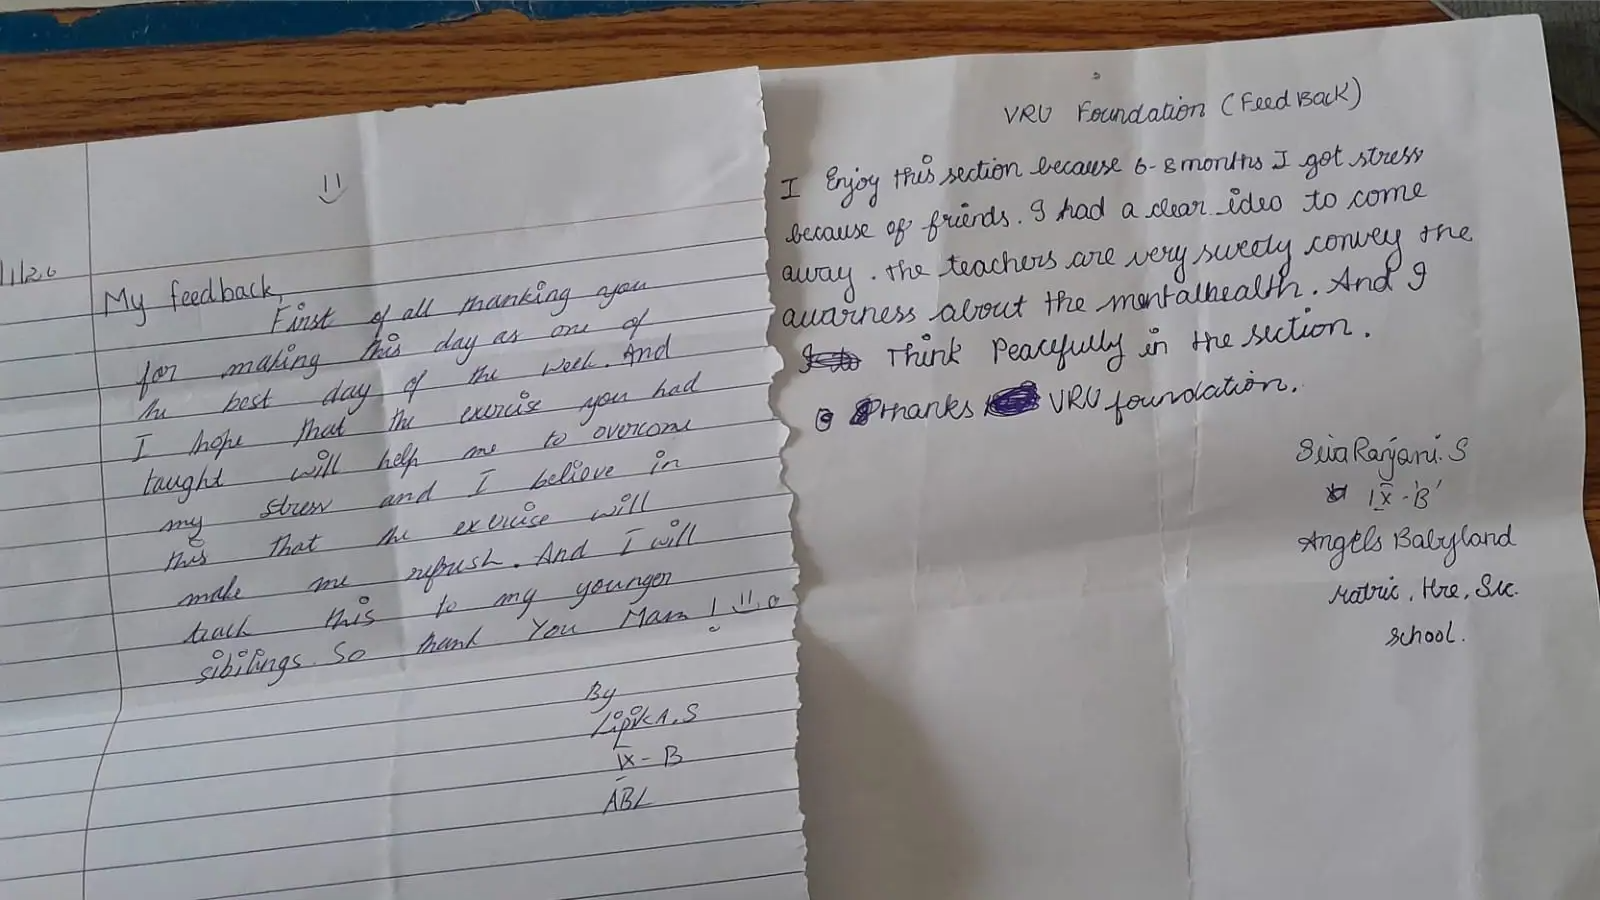 My feedback,
First of all thanking you
for making this day as one of
the best day of the week. And
I hope that the exercise you had
taught will help me to overcome
my stress and I believe in
this that the exercise will
make me refresh. And I will
teach this to my younger
sibilings. So thank You Mam!
By
IX - B
ABL
VRU Foundation (FeedBack)
I Enjoy this section because 6-8 months I got stress
because of friends. I had a clear ideo to come
away. the teachers are very sweety convey the
awarness about the mentalhealth. And I
Think Peacefully in the section.
thanks VRU foundation.
Ranjani. S
IX - 'B'
Angels Babyland
Matric, Hre, Sec.
school.